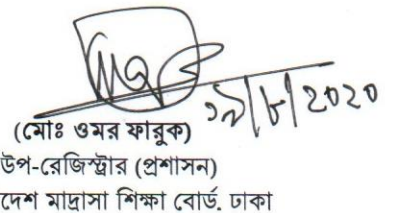 ১৯/৮/2020
(মোঃ ওমর ফারুক)
উপ-রেজিস্ট্রার (প্রশাসন)
দেশ মাদ্রাসা শিক্ষা বোর্ড, ঢাকা